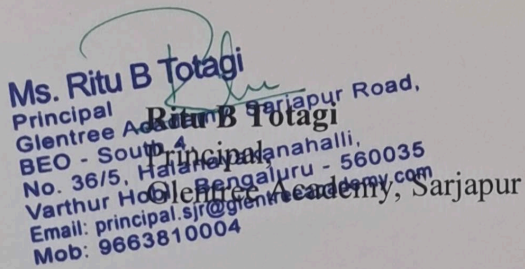 Ms. Ritu B Totagi
Principal
Glentree Academy, Sarjapur Road,
BEO - South 4
No. 36/5,
Varthur Bengaluru - 560035
Email: principal.sjr@glentreeacademy.com
Mob: 9663810004
Ritu B Totagi
Principal,
Glentree Academy, Sarjapur